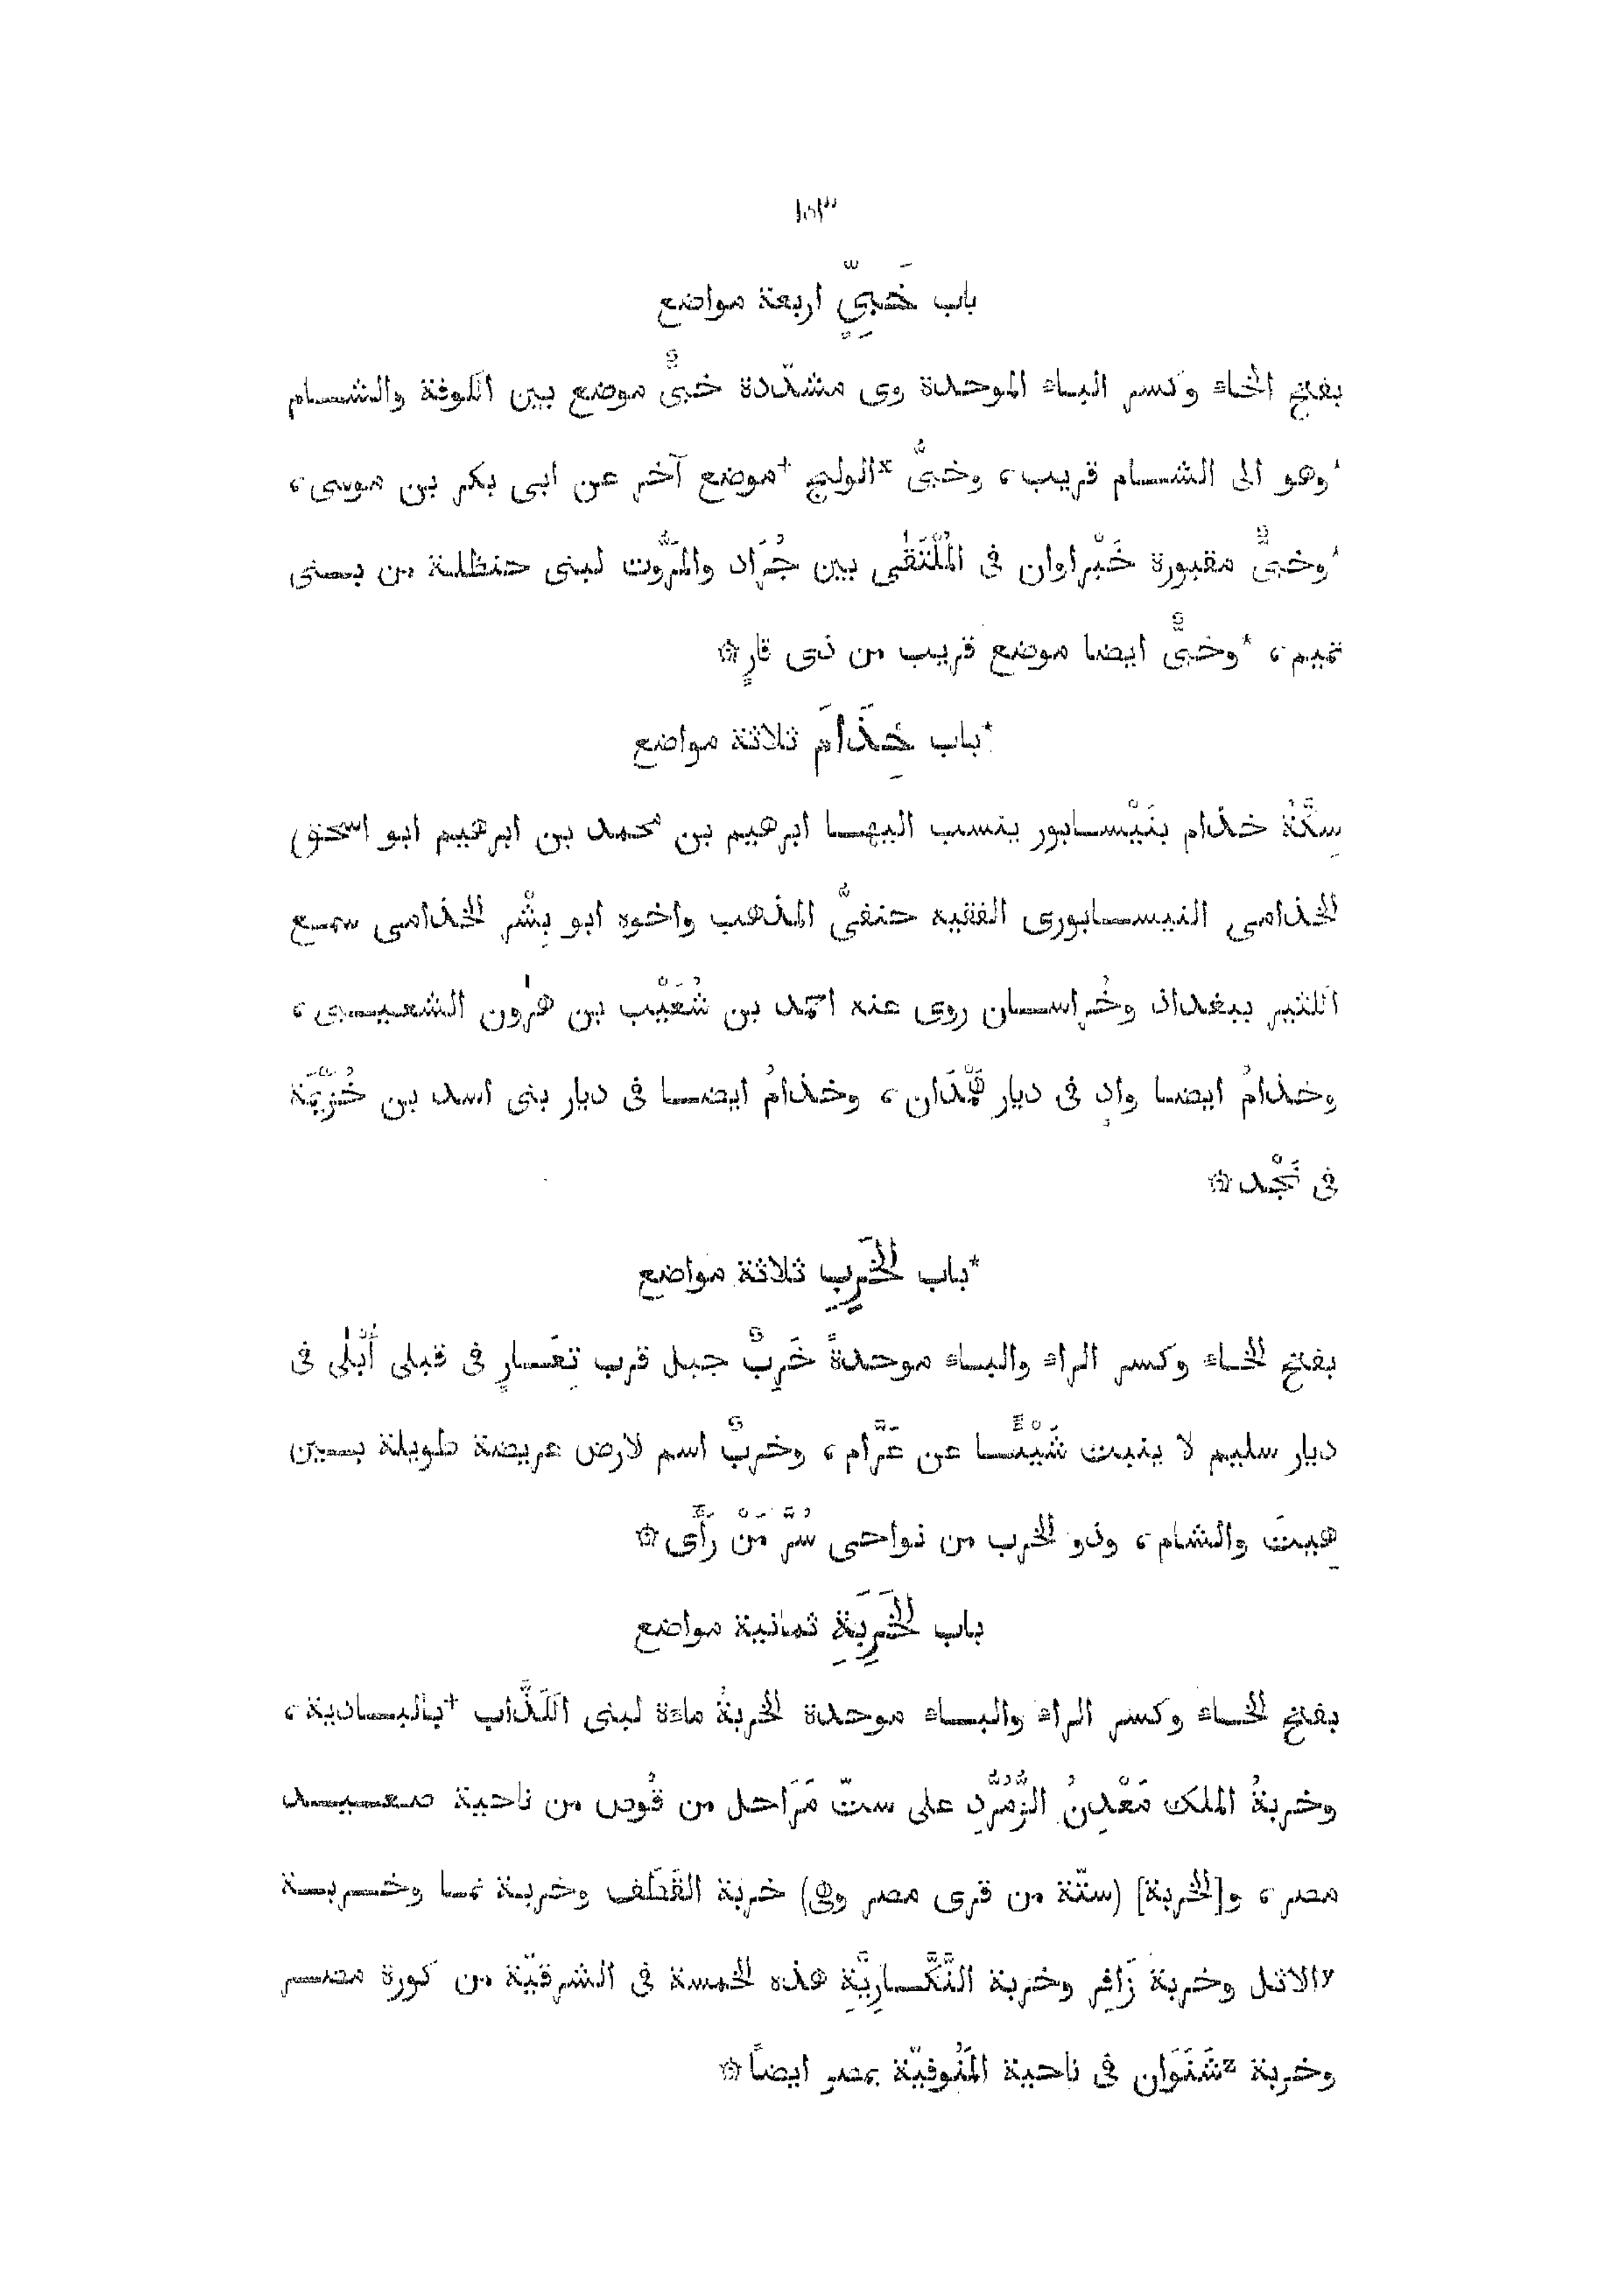 ١٥٣
باب خَبِىٍّ اربعة مواضع
بفتح الخاء وكسر الباء الموحدة وى مشدّدة خبىٌّ موضع بين الكوفة والشام
'وهو الى الشام قريب، وخبىُّ *الولج +موضع آخر عن ابى بكر بن موسى،
'وخبىٌّ مقبورة خَبْراوان فى المُلْتَقٰى بين جُرَاد والمَرُّوت لبنى حنظلة من بنى
تميم، *وخبىٌّ ايضا موضع قريب من ذى قارٍ ۞
*باب خِذَامَ ثلاثة مواضع
سِكَّةُ خذام بنَيْسابور ينسب اليها ابرهيم بن محمد بن ابرهيم ابو اسحٰق
الخذامى النيسابورى الفقيه حنفىُّ المذهب واخوه ابو بِشْر الخذامى سمع
الكثير ببغداذ وخُراسان روى عنه احمد بن شُعَيْب بن هٰرون الشعيبى،
وخذامُ ايضا وادٍ فى ديار هَمْدَان، وخذامُ ايضا فى ديار بنى اسد بن خُزَيْمَة
فى نَجْد ۞
*باب الخَرِبِ ثلاثة مواضع
بفتح الخاء وكسر الراء والباء موحدةً خَرِبٌ جبل قرب تِعَارٍ فى قبلى أُبْلٰى فى
ديار سليم لا ينبت شَيْئًا عن عَرَّام، وخربٌ اسم لارض عريضة طويلة بين
هِيتَ والشام، وذو الخرب من نواحى سُرَّ مَنْ رَأَى ۞
باب الخَرِبَةِ ثمانية مواضع
بفتح الخاء وكسر الراء والباء موحدة الخربةُ ماءة لبنى الكَذَّاب +بالبادية،
وخربةُ الملك مَعْدِنُ الزُّمُرُّدِ على ستّ مَرَاحل من قُوص من ناحية صعيد
مصر، و[الخربة] (ستّة من قرى مصر وهى) خربة القَطَف وخربة نما وخربة
yالاثل وخربة زَافِر وخربة النَّكَّارِيَّةِ هذه الخمسة فى الشرقيّة من كورة مصر
وخربة zشَنَوَان فى ناحية المَنُوفيّة بمصر ايضاً ۞